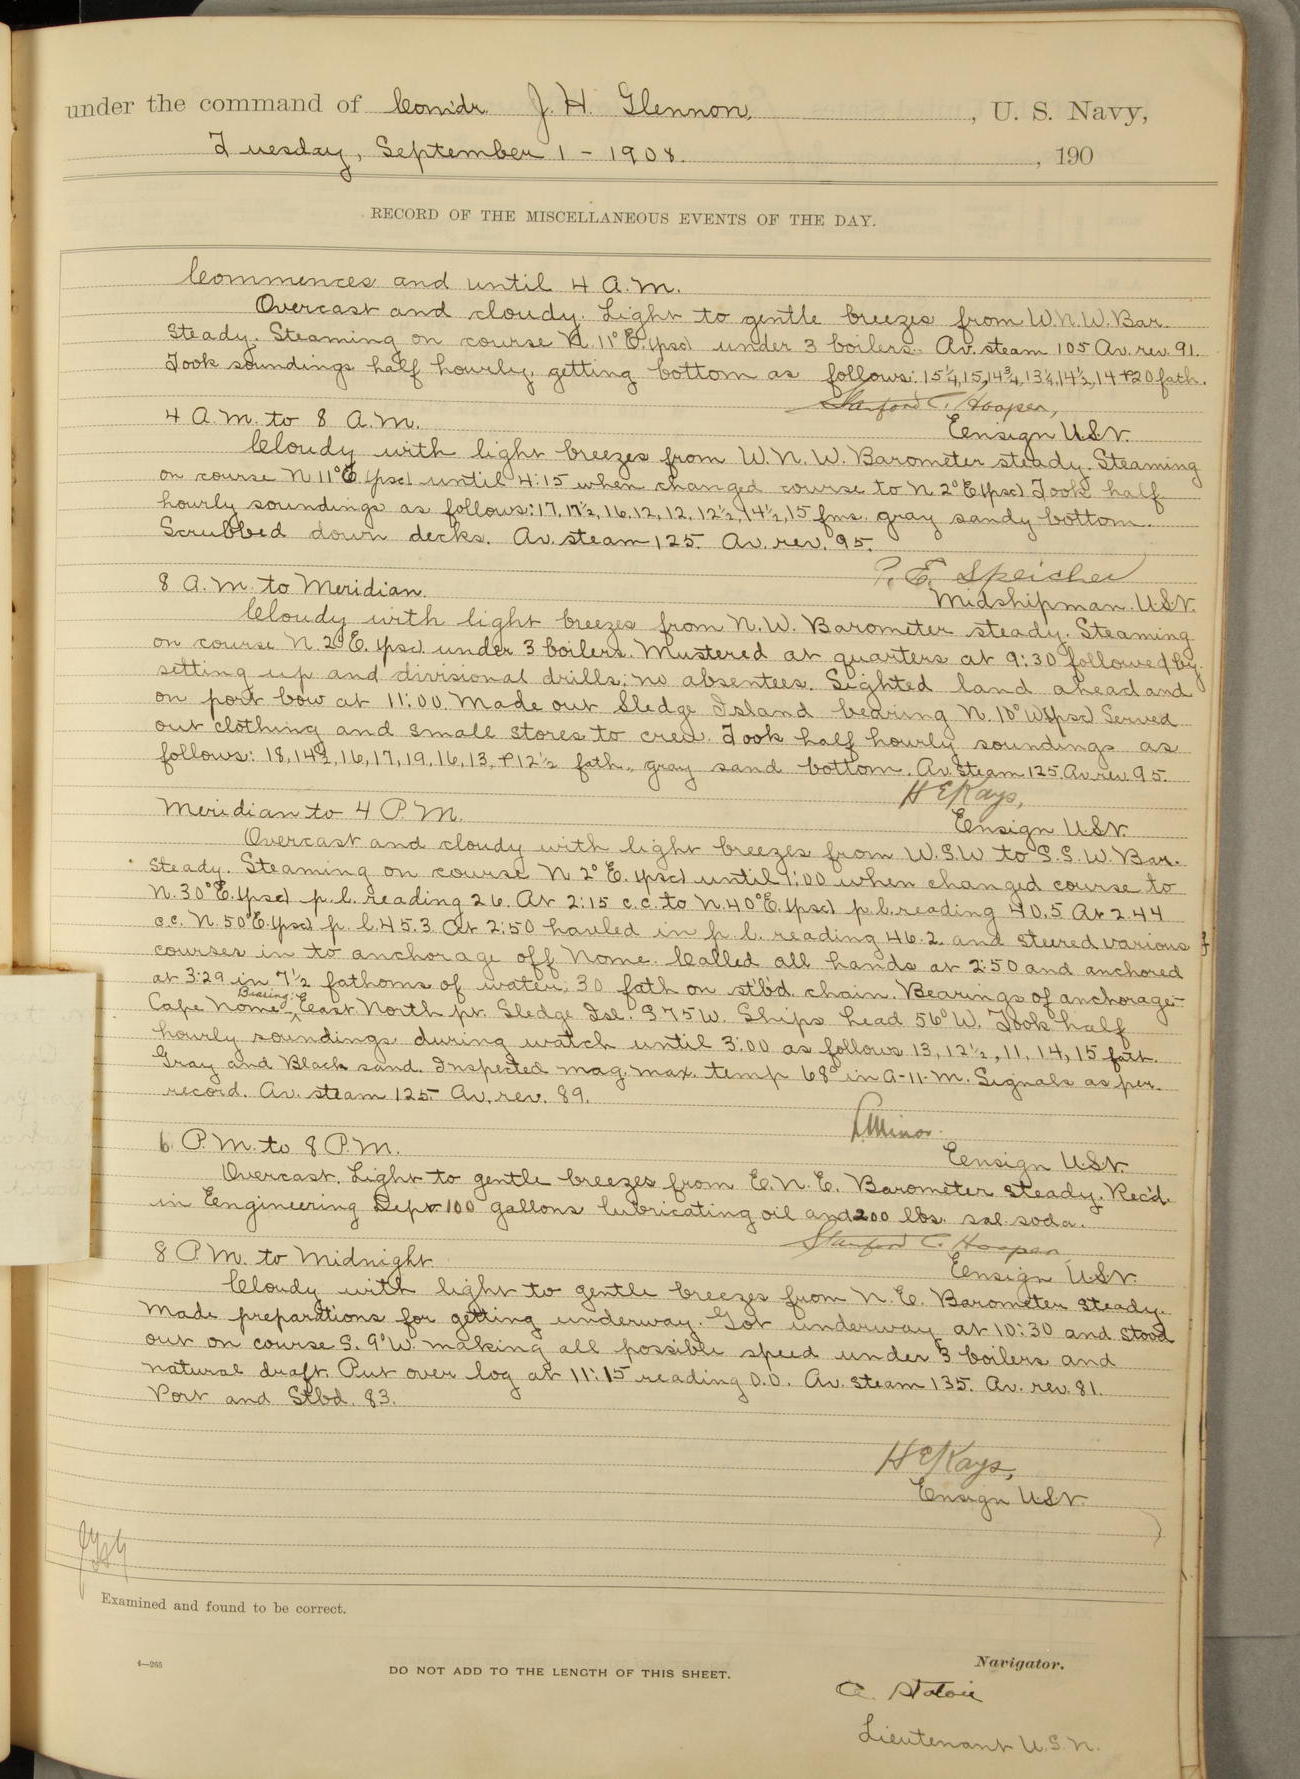 under the command of Com'dr J. H. Glennon, , U. S. Navy,
Tuesday, September 1 - 1908. , 190
RECORD OF THE MISCELLANEOUS EVENTS OF THE DAY.
Commences and until 4 A.M.
Overcast and cloudy. Light to gentle breezes from W.N.W. Bar.
steady. Steaming on course N. 11° E. (psc) under 3 boilers. Av. steam 105 Av. rev. 91.
Took soundings half hourly, getting bottom as follows: 15¼, 15, 14¾, 13¼, 14½, 14 + 20 fath.
Stanford C. Hooper,
4 A.M. to 8 A.M.
Ensign U.S.N.
Cloudy with light breezes from W.N.W. Barometer steady. Steaming
on course N 11° E. (psc) until 4:15 when changed course to N 2° E (psc) Took half
hourly soundings as follows: 17, 17½, 16, 12, 12, 12½, 14½, 15 fms. gray sandy bottom.
Scrubbed down decks. Av. steam 125. Av. rev. 95.
P. E. Speicher
8 A.M. to Meridian.
Midshipman. U.S.N.
Cloudy with light breezes from N.W. Barometer steady. Steaming
on course N. 2° E. (psc) under 3 boilers. Mustered at quarters at 9:30 followed by
setting up and divisional drills; no absentees. Sighted land ahead and
on port bow at 11:00. Made out Sledge Island bearing N. 10° W (psc) Served
out clothing and small stores to crew. Took half hourly soundings as
follows: 18, 14½, 16, 17, 19, 16, 13, + 12½ fath., gray sand bottom. Av. steam 125. Av. rev. 95.
H E Kays,
Meridian to 4 P.M.
Ensign U.S.N.
Overcast and cloudy with light breezes from W.S.W to S.S.W. Bar.
steady. Steaming on course N 2° E. (psc) until 1:00 when changed course to
N. 30° E. (psc) p. l. reading 26. At 2:15 c.c. to N. 40° E. (psc) p. l. reading 40.5 At 2.44
c.c. N. 50° E. (psc) p. l. 45.3 At 2:50 hauled in p. l. reading 46.2. and steered various
courses in to anchorage off Nome. Called all hands at 2:50 and anchored
at 3:29 in 7½ fathoms of water, 30 fath on st'b'd. chain. Bearings of anchorage-
Bearing:
Cape Nome East North pt. Sledge Isl. S 75 W. Ships head 56° W. Took half
hourly soundings during watch until 3:00 as follows 13, 12½, 11, 14, 15 fath.
Gray and Black sand. Inspected mag. max. temp 68° in A-11-M. Signals as per.
record. Av. steam 125- Av. rev. 89.
L. Minor.
6 P.M. to 8 P.M.
Ensign U.S.N.
Overcast. Light to gentle breezes from E.N.E. Barometer steady. Rec'd.
in Engineering Dept 100 gallons lubricating oil and 200 lbs. sal soda.
Stanford C. Hooper,
8 P.M. to Midnight
Ensign U.S.N.
Cloudy with light to gentle breezes from N.E. Barometer steady.
Made preparations for getting underway. Got underway at 10:30 and stood
out on course S. 9° W. making all possible speed under 3 boilers and
natural draft. Put over log at 11:15 reading 0.0. Av. steam 135. Av. rev. 81.
Port and Stbd. 83.
H E Kays,
Ensign U.S.N.
Examined and found to be correct.
4—265
DO NOT ADD TO THE LENGTH OF THIS SHEET.
Navigator.
Lieutenant U.S.N.